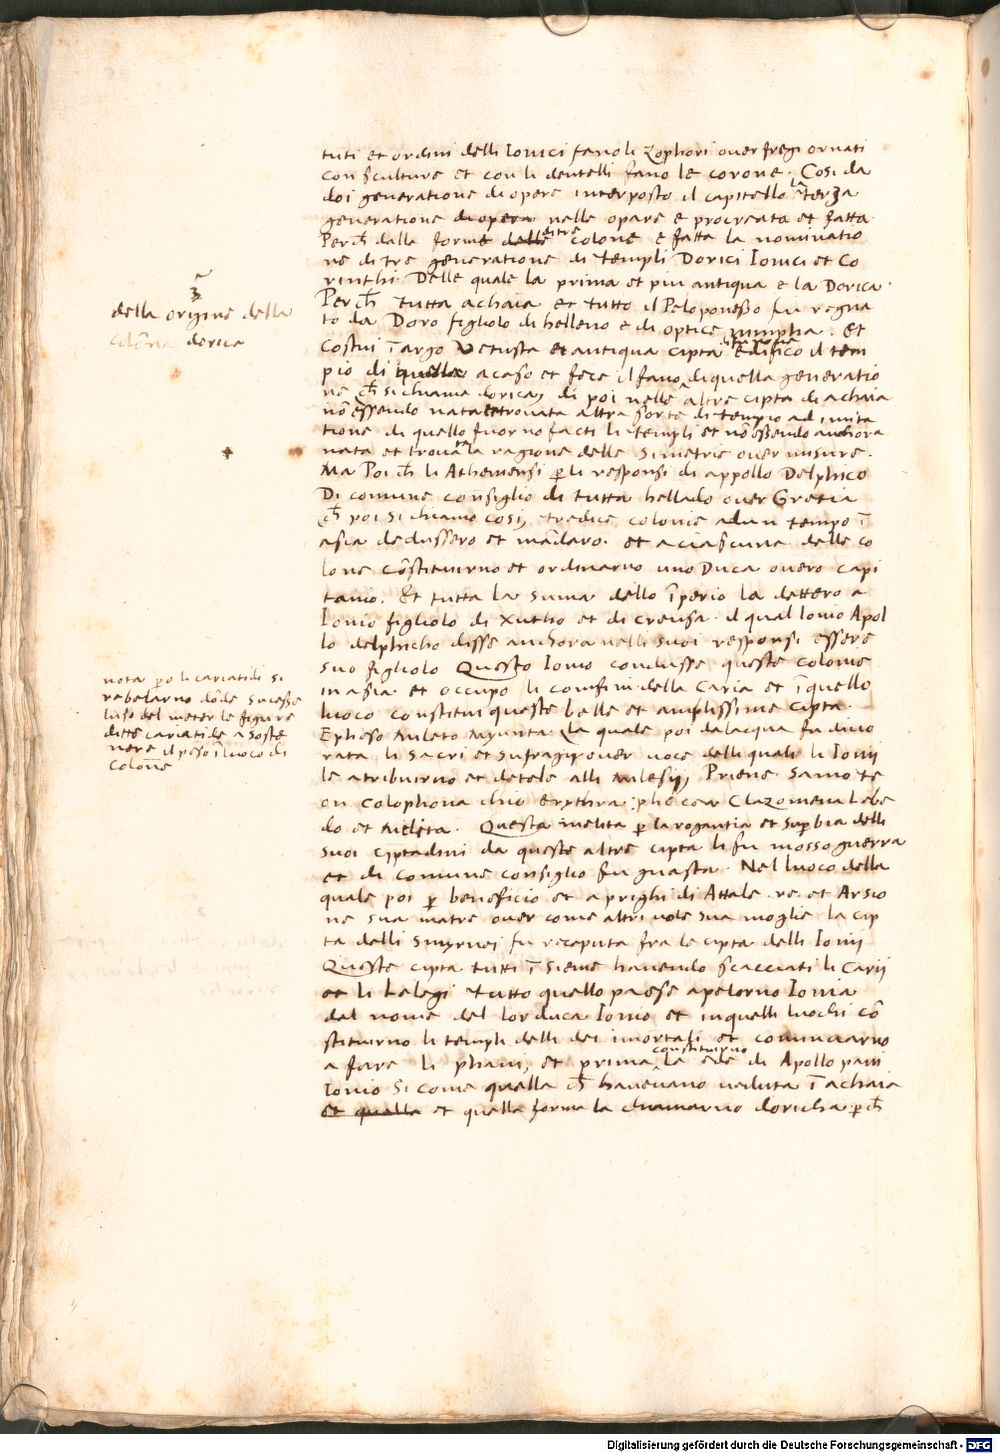 tuti et ordini delli Ionici fanoli Zophori over fregi ornati
con sculture et con li dentelli fano le corone. Cosi da
doi generatione di opere interposto il capitello la terza
generatione di opera nelle opare e procreata et fatta
Perch̄ dalla forme delle ditre colone e fatta la nominatio
ne di tre generatione di templi Dorici Ionici et Co
rinthi Delle quale la prima et piu antiqua e la Dorica.
Perch̄ tutta achaia et tutto il Peloponesso fu regna
to da Doro figliolo di helleno e di optice nimpha. et
Costui ī argo Vetusta et antiqua cipta edifico il tem
pio di a caso et fece il fano di quella generatio
ne ch̄ si chiama dorica, di poi nelle altre cipta di achaia
nō essendo nata et trovata altra sorte di tempio ad imita
tione di quello fuorno facti li templi et nō essendo anchora
nata et trovata la ragione delle simetrie over misure.
Ma Poi ch̄ li Atheniensi p̄ li responsi di appollo Delphico
Di comune consiglio di tutta hellado over Gretia
ch̄ poi si chiamo cosi, tredice colonie ad un tempo ī
asia dedussero et mādaro. et a ciascuna delle co
lone cōstituirno et ordinarno uno Duca overo capi
tanio. Et tutta la suma dello īperio la dettero a
Ionio figliolo di Xutho et di Creusa. il qual Ionio Apol
lo delphicho disse anchora nelli suoi responsi essere
suo figliolo Questo Ionio condusse queste colonie
in asia et occupo li confini della Caria et ī quello
luoco constitui queste belle et amplissime cipta.
Epheso Mileto Myunta La quale poi dalacqua fu divo
rata li sacri et sufragi over voce delli quali li Ionii
le atribuirno et detele alli Milesij, Priene Samo te
on Colophona chio erythra: phocea Clazomena Lebe
do et Melita. Questa melita p̄ larogantia et supbia delli
suoi ciptadini da queste altre cipta li fu mosso guerra
et di comune consiglio fu guasta. Nel luoco della
quale poi p̄ beneficio et a prighi di Attale re et Arsio
ne sua matre over come altri vole sua moglie la cip
ta delli Smyrnei fu receputa fra le cipta delli Ionij
Queste cipta tutti īsieme havendo scacciati li Carij
et li Lelegi tutto quello paese apelorno Ionia
dal nome del lor duca Ionio et in quelli luochi cō
stituirno li templi delli dei imortali et cominciarno
a fare li phani, et prima constituirno le ede di Apollo pani
Ionio si come quella ch̄ havevano veduta ī achaia
et quella et quella forma la chiamarno doricha p̄ch̄
3
della origine della
colōna dorica
nota p̄o li cariatidi si
rebelarno dōde sucesse
luso del meter le figure
ditte cariatide a soste
nere il peso ī luoco di
colōne
Digitalisierung gefördert durch die Deutsche Forschungsgemeinschaft - DFG